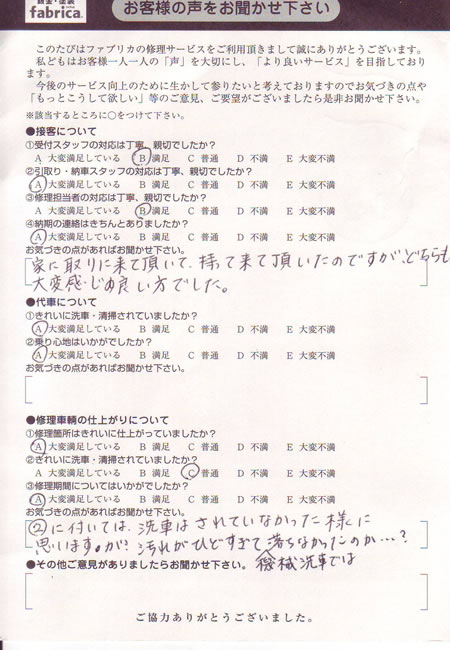 鈑金・塗装
fabrica.
お客様の声をお聞かせ下さい
このたびはファブリカの修理サービスをご利用頂きまして誠にありがとうございます。
私どもはお客様一人一人の「声」を大切にし、「より良いサービス」を目指しております。
今後のサービス向上のために生かして参りたいと考えておりますのでお気づきの点や
「もっとこうして欲しい」等のご意見、ご要望がございましたら是非お聞かせ下さい。
※該当するところに○をつけて下さい。
●接客について
①受付スタッフの対応は丁寧、親切でしたか?
A 大変満足している B 満足 C 普通 D 不満 E 大変不満
②引取り・納車スタッフの対応は丁寧、親切でしたか?
A 大変満足している B 満足 C 普通 D 不満 E 大変不満
③修理担当者の対応は丁寧、親切でしたか?
A 大変満足している B 満足 C 普通 D 不満 E 大変不満
④納期の連絡はきちんとありましたか?
A 大変満足している B 満足 C 普通 D 不満 E 大変不満
お気づきの点があればお聞かせ下さい。
家に取りに来て頂いて、持って来て頂いたのですが、どちらも
大変感じの良い方でした。
●代車について
①きれいに洗車・清掃されていましたか?
A 大変満足している B 満足 C 普通 D 不満 E 大変不満
②乗り心地はいかがでしたか?
A 大変満足している B 満足 C 普通 D 不満 E 大変不満
お気づきの点があればお聞かせ下さい。
●修理車輌の仕上がりについて
①修理箇所はきれいに仕上がっていましたか?
A 大変満足している B 満足 C 普通 D 不満 E 大変不満
②きれいに洗車・清掃されていましたか?
A 大変満足している B 満足 C 普通 D 不満 E 大変不満
③修理期間についてはいかがでしたか?
A 大変満足している B 満足 C 普通 D 不満 E 大変不満
お気づきの点があればお聞かせ下さい。
②に付いては、洗車はされていなかった様に
思いますが?汚れがひどすぎて落ちなかったのか…?
機械洗車では
●その他ご意見がありましたらお聞かせ下さい。
ご協力ありがとうございました。